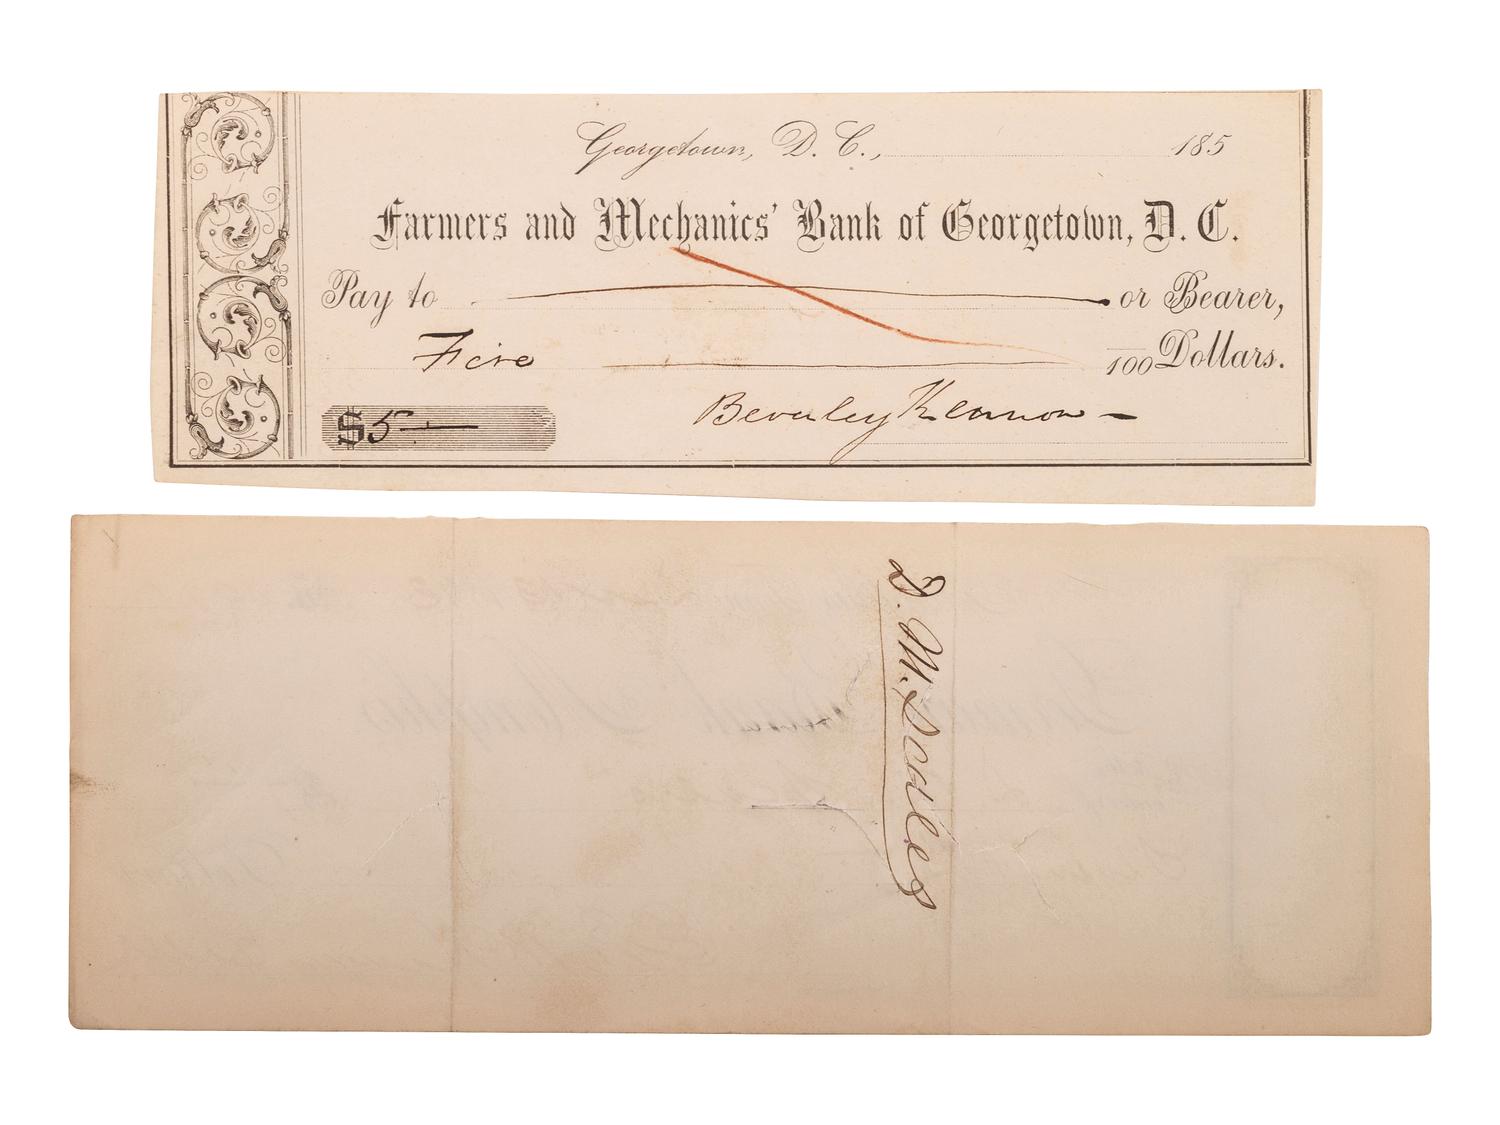 Georgetown, D. C., 185
Farmers and Mechanics' Bank of Georgetown, D. C.
Pay to or Bearer,
Five /100 Dollars.
$5
Beverley Kennon
D. M. Scales